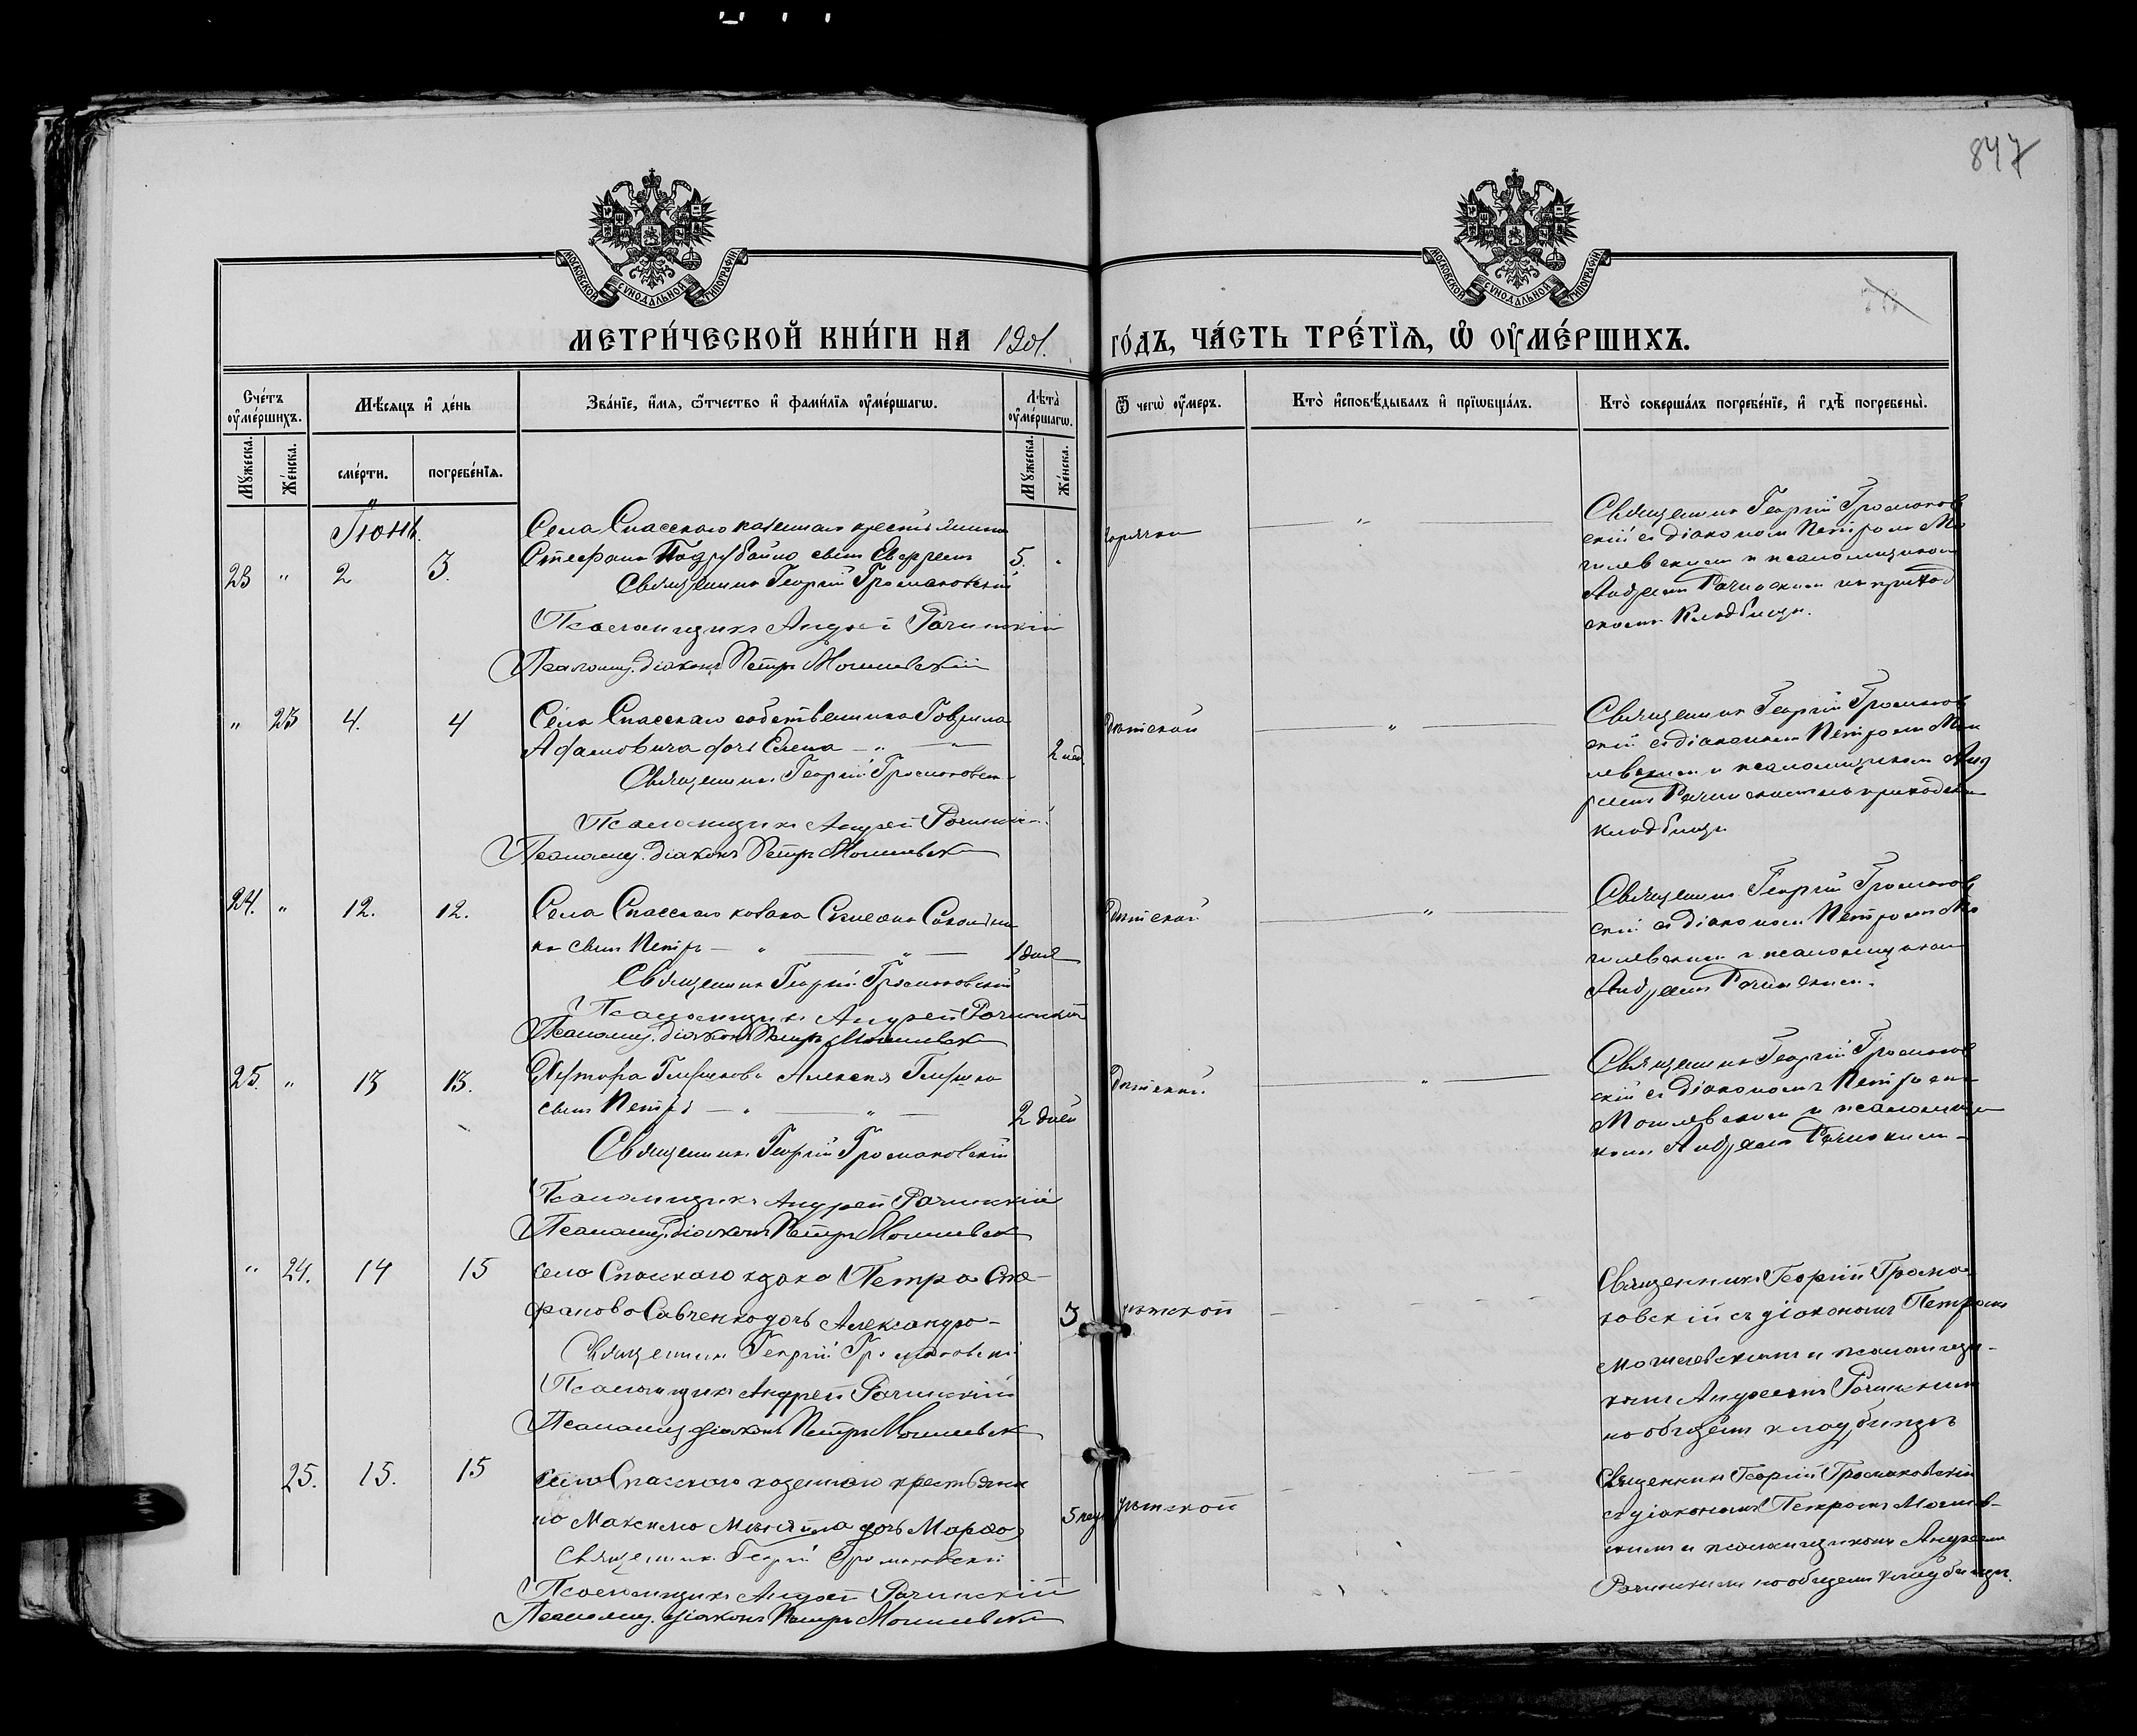 847
МОСКОВСКОЙ СУНОДАЛЬНОЙ ТИПОГРАФІИ
МОСКОВСКОЙ СУНОДАЛЬНОЙ ТИПОГРАФІИ
МЕТРИ́ЧЕСКОЙ КНИ́ГИ НА 1901. ГО́ДЪ, ЧА́СТЬ ТРЕ́ТЇѦ, Ѡ҆ ОУ҆МЕ́РШИХЪ.
Сче́тъ оу҆ме́ршихъ.
Мѣ́сѧцъ и҆ де́нь
Зва́нїе, и҆́мѧ, ѻ҆́тчество и҆ фами́лїѧ оу҆ме́ршагѡ.
Лѣ́та̀ оу҆ме́ршагѡ.
Ѿ чегѡ̀ оу҆́меръ.
Кто̀ и҆сповѣ́дывалъ и҆ прїѡбща́лъ.
Кто̀ соверша́лъ погребе́нїе, и҆ гдѣ̀ погребены̀.
Мꙋ́жеска.
Же́нска.
сме́рти.
погребе́нїѧ.
Мꙋ́жеска.
Же́нска.
Іюнь.
Села Спасскаго казеннаго крестьянина
23 " 2 3. Стефана сынъ 5. горячки
Священникъ Георгій Громаковскій
Псаломщикъ Андрей Рачинскій
Псаломщ. діаконъ Петръ Могилевскій
Священникъ Георгій Громаков
скій съ діакономъ Петромъ Мо
гилевскимъ и псаломщикомъ
Андреемъ Рачинскимъ на приход
скомъ кладбищѣ.
" 23 4. 4 Села Спасскаго собственника Гаврила
дочь Елена 2 нед. дѣтской
Священникъ Георгій Громаковскій
Псаломщикъ Андрей Рачинскій
Псаломщ. діаконъ Петръ Могилевск
Священникъ Георгій Громаков
скій съ діакономъ Петромъ Моги
левскимъ и псаломщикомъ Анд
реемъ Рачинскимъ на приходском
кладбищѣ
24. " 12. 12. Села Спасскаго козака
ка сынъ Петръ 1 дня дѣтской
Священникъ Георгій Громаковскій
Псаломщикъ Андрей Рачинскій
Псаломщ. діаконъ Петръ Могилевск
Священникъ Георгій Громаков
скій съ діакономъ Петромъ Мо
гилевскимъ и псаломщикомъ
Андреемъ Рачинскимъ.
25. " 13 13. Хутора Алексея
сынъ Петръ 2 дней дѣтской
Священникъ Георгій Громаковскій
Псаломщикъ Андрей Рачинскій
Псаломщ. діаконъ Петръ Могилевск
Священникъ Георгій Громаков
скій съ діакономъ Петромъ
Могилевскимъ и псаломщи
комъ Андреемъ Рачинскимъ
" 24. 14 15 села Спаскаго козака Петра Сте-
фанова Савченко дочь Александра 3 дѣтской
Священникъ Георгій Громаковскій
Псаломщикъ Андрей Рачинскій
Псаломщ. діаконъ Петръ Могилевск
Священникъ Георгій Грома-
ковскій съ діакономъ Петромъ
Могилевскимъ и псаломщи-
комъ Андреемъ Рачинскимъ
на общемъ кладбищѣ
25. 15. 15 села Спасскаго казеннаго крестьяни
на Максима дочь Марфа 5 нед дѣтской
Священникъ Георгій Громаковскій
Псаломщикъ Андрей Рачинскій
Псаломщ. діаконъ Петръ Могилевск
Священникъ Георгій Громаковскій
съ діакономъ Петромъ Могилев-
скимъ и псаломщикомъ Андреемъ
Рачинскимъ на общемъ кладбищѣ.